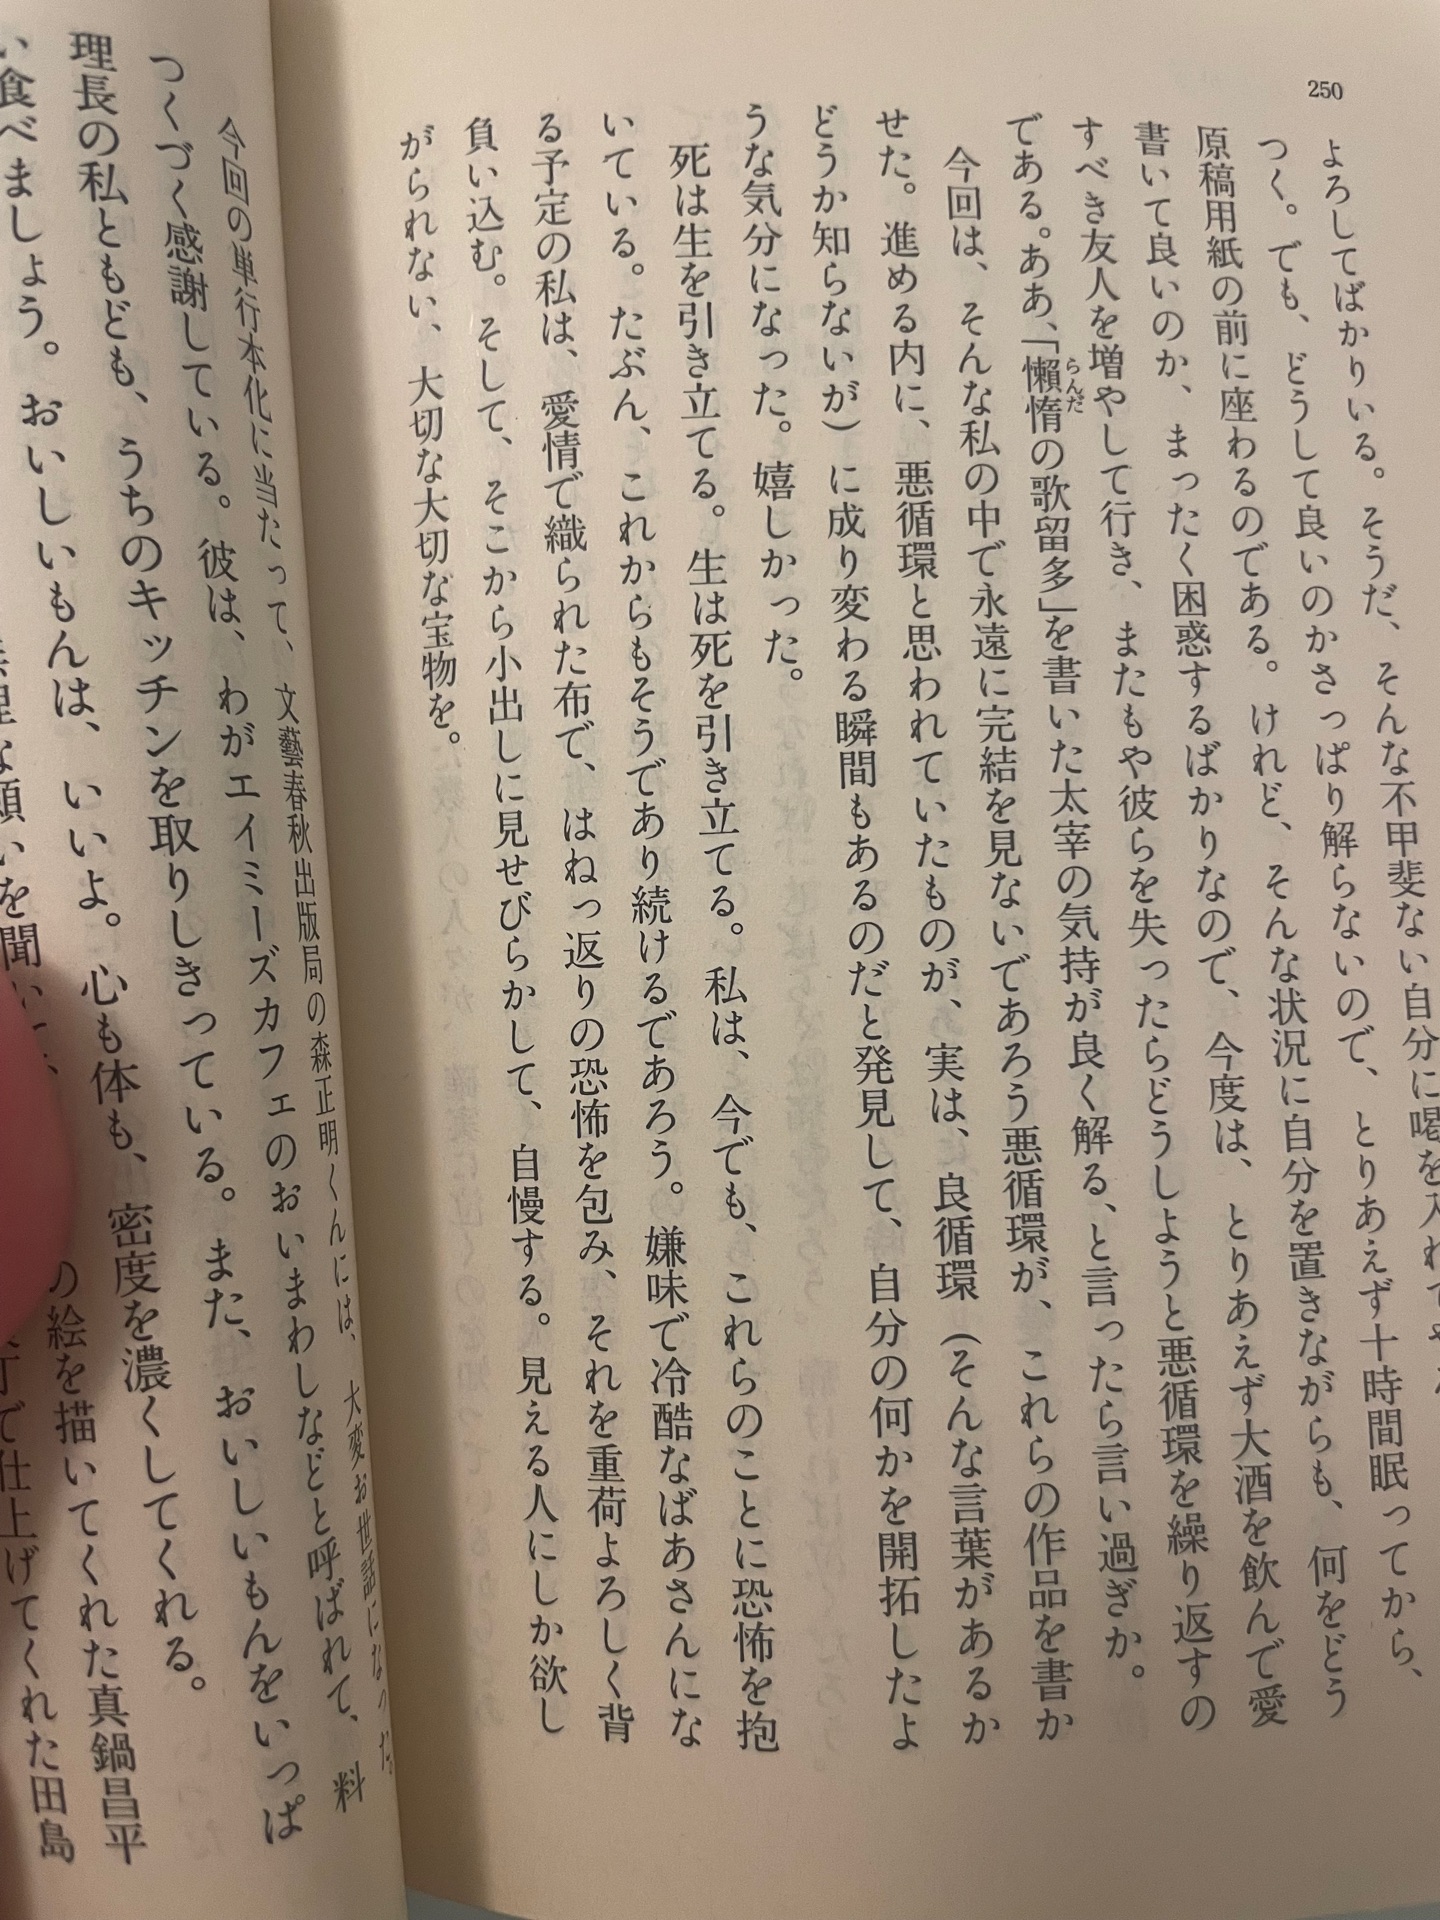 250
よろしてばかりいる。そうだ、そんな不甲斐ない自分に喝を入れてやろ
つく。でも、どうして良いのかさっぱり解らないので、とりあえず十時間眠ってから、
原稿用紙の前に座わるのである。けれど、そんな状況に自分を置きながらも、何をどう
書いて良いのか、まったく困惑するばかりなので、今度は、とりあえず大酒を飲んで愛
すべき友人を増やして行き、またもや彼らを失ったらどうしようと悪循環を繰り返すの
である。ああ、「懶惰の歌留多」を書いた太宰の気持が良く解る、と言ったら言い過ぎか。
らんだ
今回は、そんな私の中で永遠に完結を見ないであろう悪循環が、これらの作品を書か
せた。進める内に、悪循環と思われていたものが、実は、良循環（そんな言葉があるか
どうか知らないが）に成り変わる瞬間もあるのだと発見して、自分の何かを開拓したよ
うな気分になった。嬉しかった。
死は生を引き立てる。生は死を引き立てる。私は、今でも、これらのことに恐怖を抱
いている。たぶん、これからもそうであり続けるであろう。嫌味で冷酷なばあさんにな
る予定の私は、愛情で織られた布で、はねっ返りの恐怖を包み、それを重荷よろしく背
負い込む。そして、そこから小出しに見せびらかして、自慢する。見える人にしか欲し
がられない、大切な大切な宝物を。
今回の単行本化に当たって、文藝春秋出版局の森正明くんには、大変お世話になった。
つくづく感謝している。彼は、わがエイミーズカフェのおいまわしなどと呼ばれて、料
理長の私ともども、うちのキッチンを取りしきっている。また、おいしいもんをいっぱ
い食べましょう。おいしいもんは、いいよ。心も体も、密度を濃くしてくれる。
な願いを聞い
の絵を描いてくれた真鍋昌平
で仕上げてくれた田島